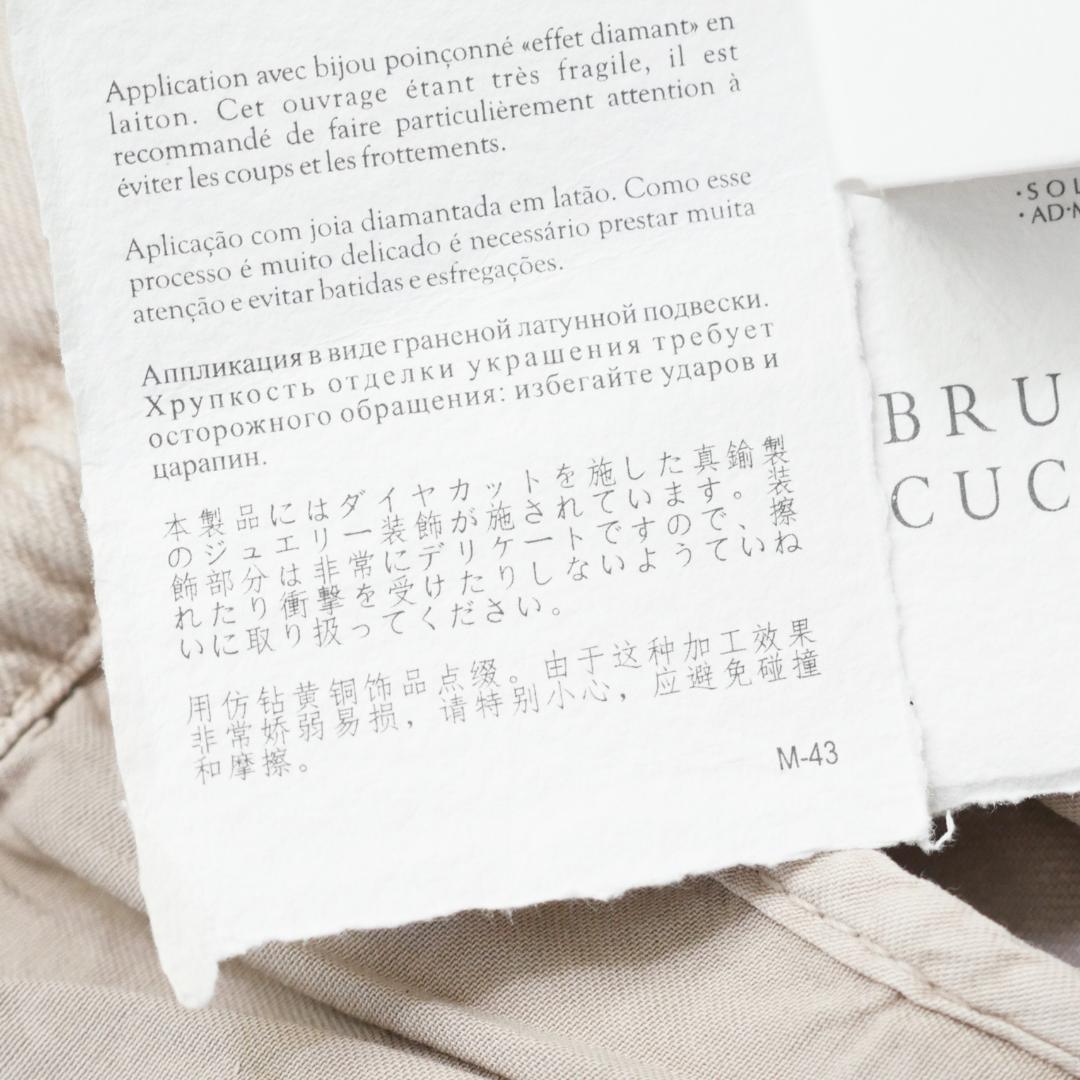 Application avec bijou poinçonné «effet diamant» en
laiton. Cet ouvrage étant très fragile, il est
recommandé de faire particulièrement attention à
éviter les coups et les frottements.
Aplicação com joia diamantada em latão. Como esse
processo é muito delicado é necessário prestar muita
atenção e evitar batidas e esfregações.
Аппликация в виде граненой латунной подвески.
Хрупкость отделки украшения требует
осторожного обращения: избегайте ударов и
царапин.
本製品にはダイヤカットを施した真鍮製
のジュエリー装飾が施されています。装
飾部分は非常にデリケートですので、擦
れたり衝撃を受けたりしないようていね
いに取り扱ってください。
用仿钻黄铜饰品点缀。由于这种加工效果
非常娇弱易损，请特别小心，应避免碰撞
和摩擦。
M-43
·SOL
·AD·M
BRU
CUC